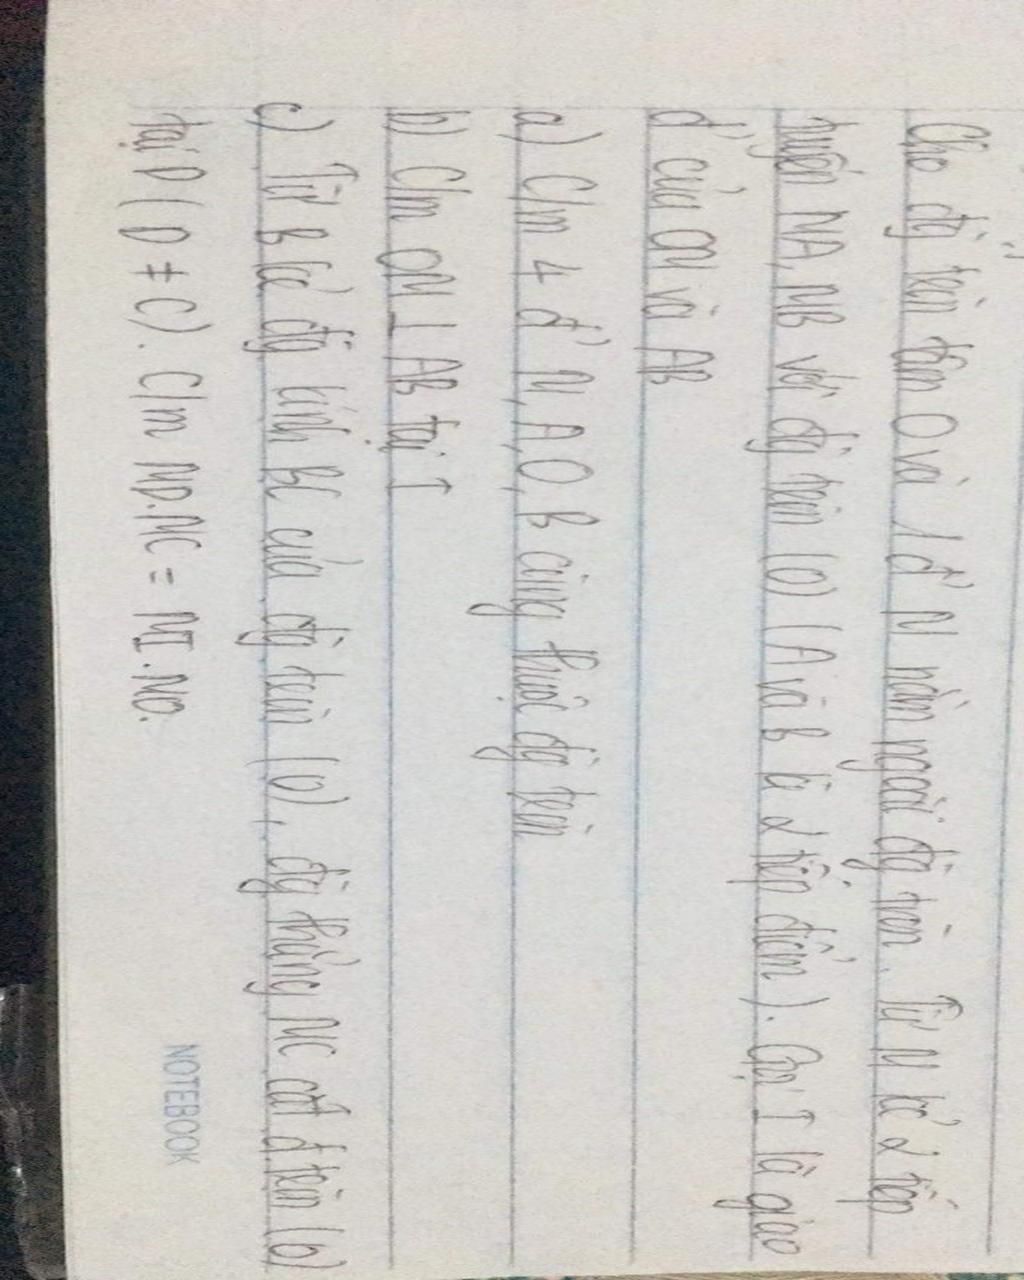 Cho đg tròn tâm O và 1 đ' M nằm ngoài đg tròn. Từ M kẻ 2 tiếp
tuyến MA, MB với đg tròn (O) (A và B là 2 tiếp điểm). Gọi I là giao
đ' của OM và AB
a) C/m 4 đ' M, A, O, B cùng thuộc đg tròn
b) C/m OM ⊥ AB tại I
c) Từ B kẻ đg kính BC của đg tròn (O), đg thẳng MC cắt đ.tròn (O)
tại D (D ≠ C). C/m MD.MC = MI.MO.
NOTEBOOK